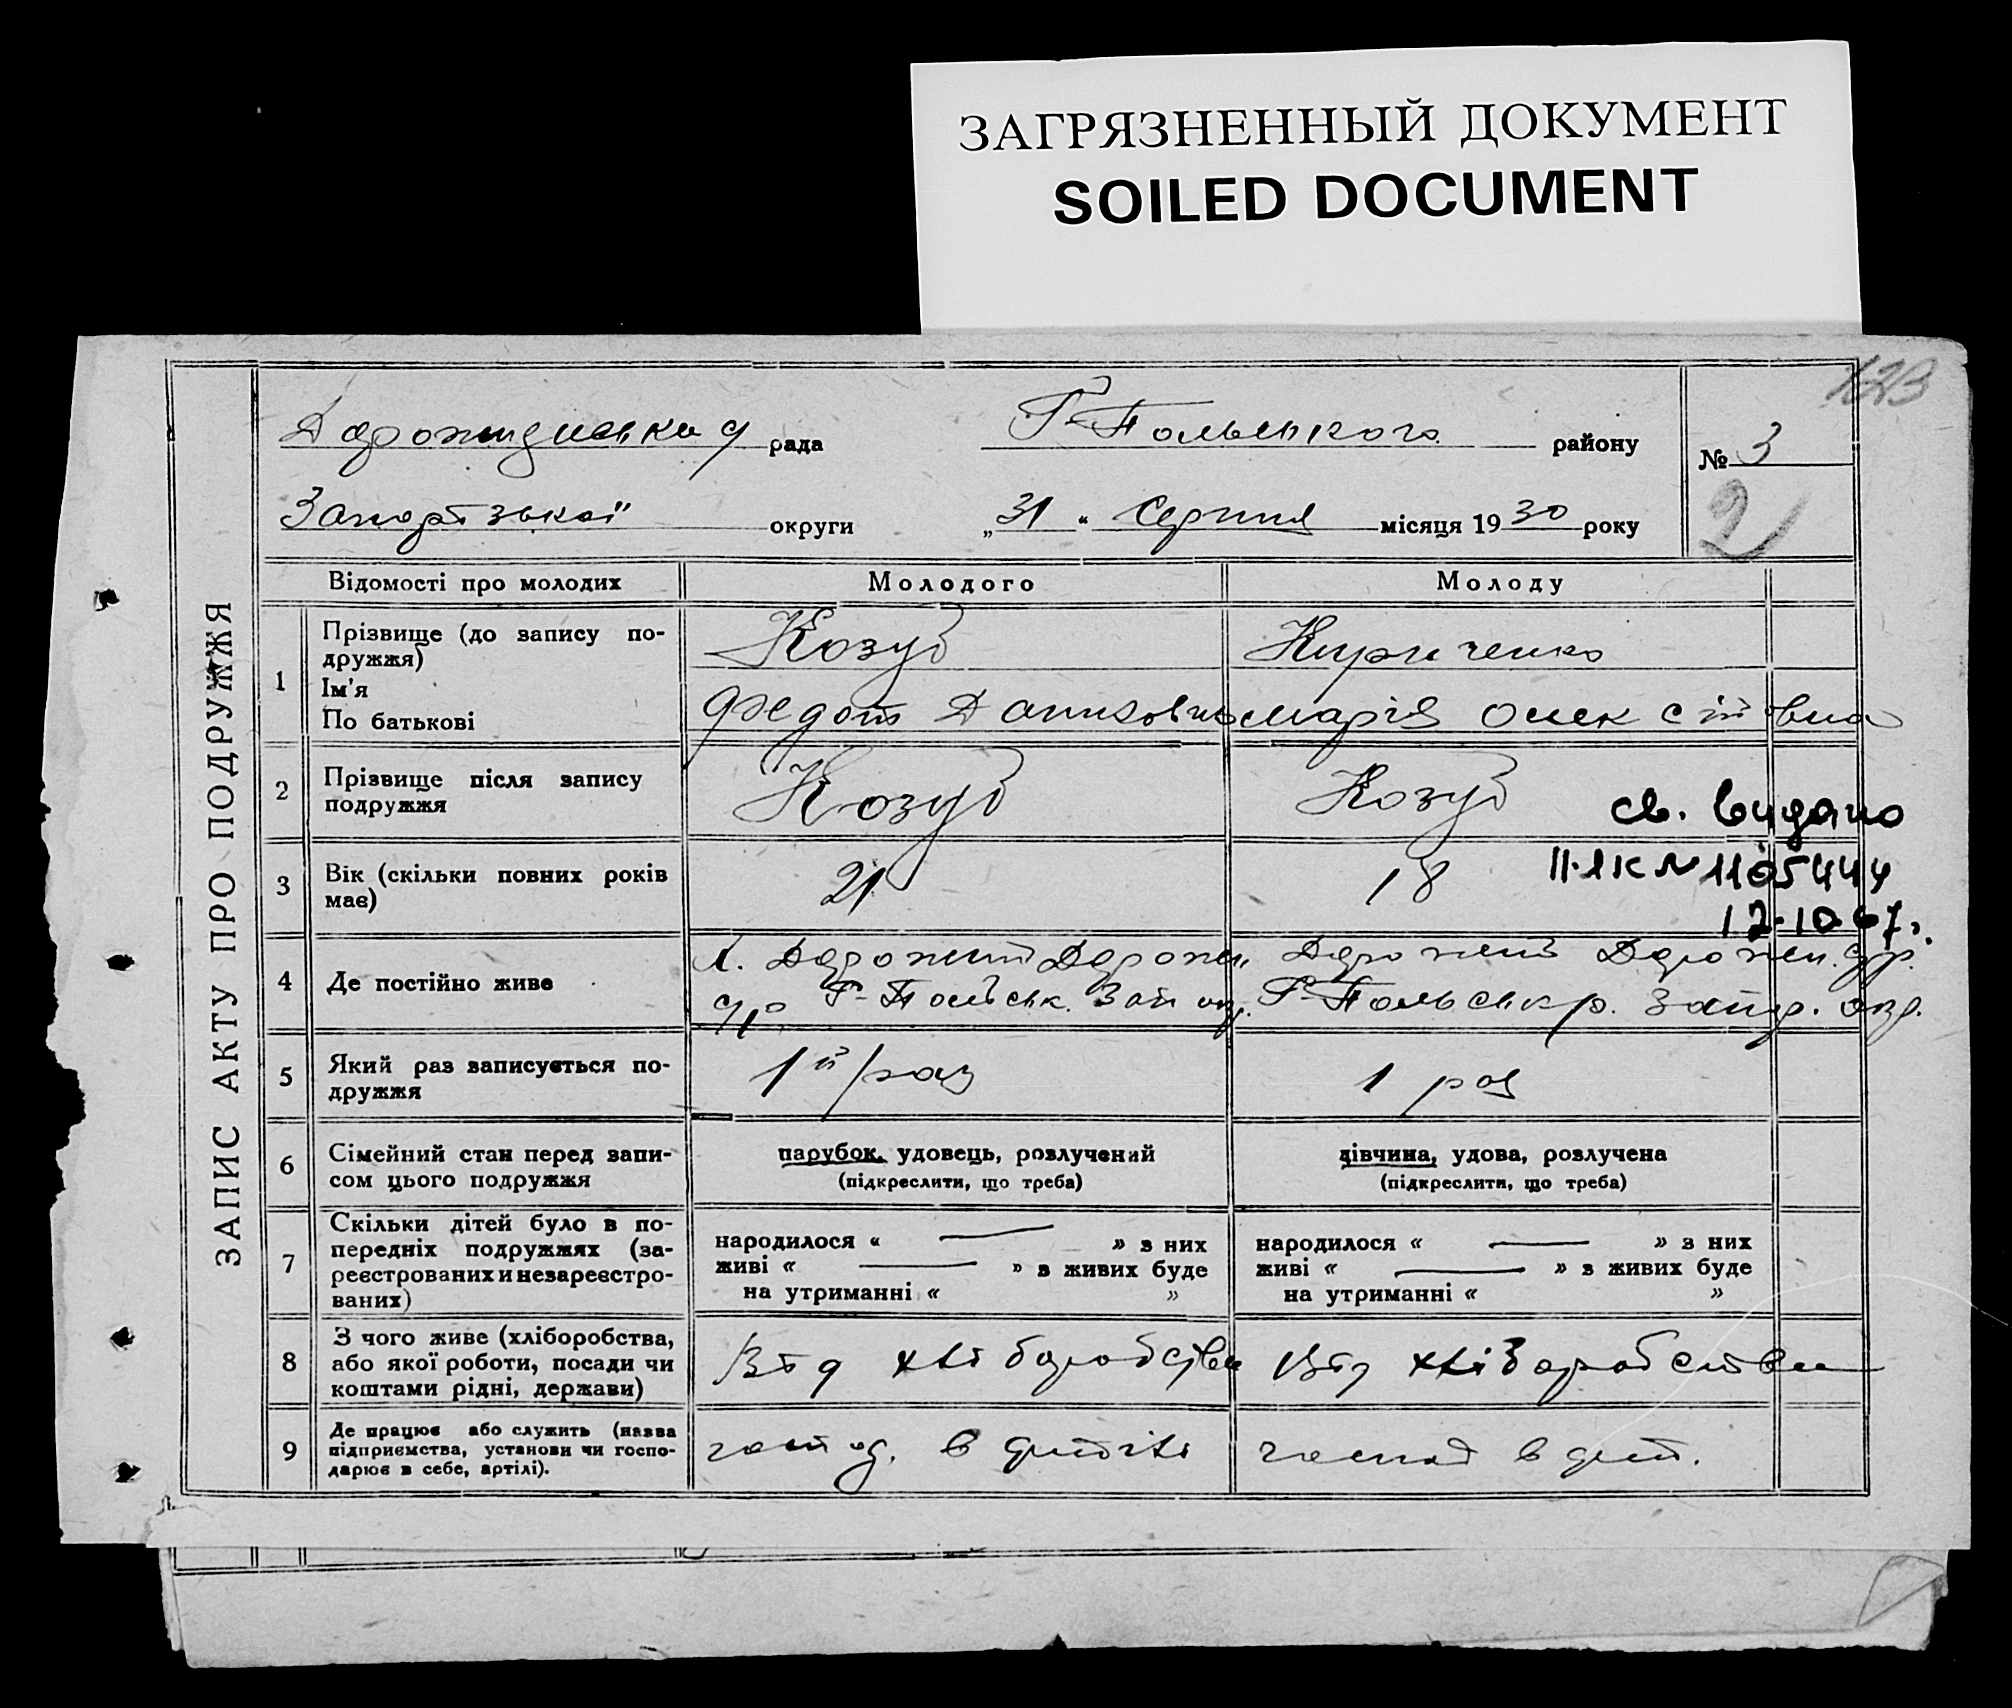 ЗАГРЯЗНЕННЫЙ ДОКУМЕНТ
SOILED DOCUMENT
ЗАПИС АКТУ ПРО ПОДРУЖЖЯ
рада Г-Польського району
№ 3
округи „31“ Серпня місяця 1930 року
2
Відомості про молодих Молодого Молоду
1 Прізвище (до запису по-
дружжя)
Ім'я
По батькові
Козуб Кириченко
Федот Данилович Марія Олексіївна
2 Прізвище після запису
подружжя
Козуб Козуб
св. видано
3 Вік (скільки повних років
має)
21 18
II-ЯК № 1105444
12-10-67г.
4 Де постійно живе
Г-Польськ. Зап. Г-Польськ р. Запор. окр.
5 Який раз записується по-
дружжя
1й раз 1 раз
6 Сімейний стан перед запи-
сом цього подружжя
парубок, удовець, розлучений дівчина, удова, розлучена
(підкреслити, що треба) (підкреслити, що треба)
7 Скільки дітей було в по-
передніх подружжях (за-
реєстрованих и незареєстро-
ваних)
народилося « — » з них народилося « — » з них
живі « — » з живих буде живі « — » з живих буде
на утриманні « » на утриманні « »
8 З чого живе (хліборобства,
або якої роботи, посади чи
коштами рідні, держави)
Від хліборобства Від хліборобства
9 Де працює або служить (назва
підприємства, установи чи госпо-
дарює в себе, артілі).
господ. в господ в